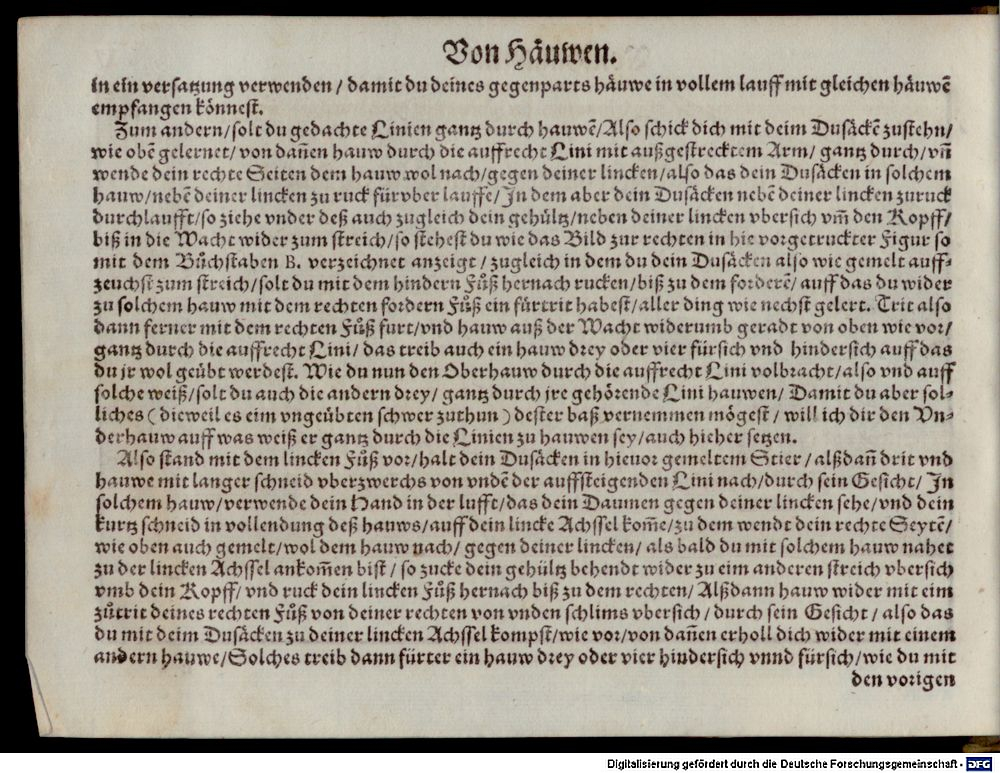 Von Häuwen.
in ein versatzung verwenden / damit du deines gegenparts häuwe in vollem lauff mit gleichen häuwẽ
empfangen könnest.
Zum andern / solt du gedachte Linien gantz durch hauwẽ / Also schick dich mit deim Dusäckẽ zustehn /
wie obẽ gelernet / von dañen hauw durch die auffrecht Lini mit außgestrecktem Arm / gantz durch / vñ
wende dein rechte Seiten dem hauw wol nach / gegen deiner lincken / also das dein Dusäcken in solchem
hauw / nebẽ deiner lincken zu ruck fürvber lauffe / In dem aber dein Dusäcken nebẽ deiner lincken zuruck
durchlaufft / so ziehe vnder deß auch zugleich dein gehültz / neben deiner lincken vbersich vm̃ den Kopff /
biß in die Wacht wider zum streich / so stehest du wie das Bild zur rechten in hie vorgetruckter Figur so
mit dem Bůchstaben B. verzeichnet anzeigt / zugleich in dem du dein Dusäcken also wie gemelt auff-
zeuchst zum streich / solt du mit dem hindern Fůß hernach rucken / biß zu dem forderẽ / auff das du wider
zu solchem hauw mit dem rechten fordern Fůß ein fürtrit habest / aller ding wie nechst gelert. Trit also
dann ferner mit dem rechten Fůß furt / vnd hauw auß der Wacht widerumb geradt von oben wie vor /
gantz durch die auffrecht Lini / das treib auch ein hauw drey oder vier fürsich vnd hindersich auff das
du jr wol geübt werdest. Wie du nun den Oberhauw durch die auffrecht Lini volbracht / also vnd auff
solche weiß / solt du auch die andern drey / gantz durch jre gehörende Lini hauwen / Damit du aber sol-
liches ( dieweil es eim vngeübten schwer zuthun ) dester baß vernemmen mögest / will ich dir den Vn-
derhauw auff was weiß er gantz durch die Linien zu hauwen sey / auch hieher setzen.
Also stand mit dem lincken Fůß vor / halt dein Dusäcken in hievor gemeltem Stier / alßdañ drit vnd
hauwe mit langer schneid vberzwerchs von vndẽ der auffsteigenden Lini nach / durch sein Gesicht / In
solchem hauw / verwende dein Hand in der lufft / das dein Daumen gegen deiner lincken sehe / vnd dein
kurtz schneid in vollendung deß hauws / auff dein lincke Achssel kom̃e / zu dem wendt dein rechte Seytẽ /
wie oben auch gemelt / wol dem hauw nach / gegen deiner lincken / als bald du mit solchem hauw nahet
zu der lincken Achssel ankom̃en bist / so zucke dein gehültz behendt wider zu eim anderen streich vbersich
vmb dein Kopff / vnd ruck dein lincken Fůß hernach biß zu dem rechten / Alßdann hauw wider mit eim
zůtrit deines rechten Fůß von deiner rechten von vnden schlims vbersich / durch sein Gesicht / also das
du mit deim Dusäcken zu deiner lincken Achssel kompst / wie vor / von dañen erholl dich wider mit einem
andern hauwe / Solches treib dann fürter ein hauw drey oder vier hindersich vnnd fürsich / wie du mit
den vorigen
Digitalisierung gefördert durch die Deutsche Forschungsgemeinschaft - DFG